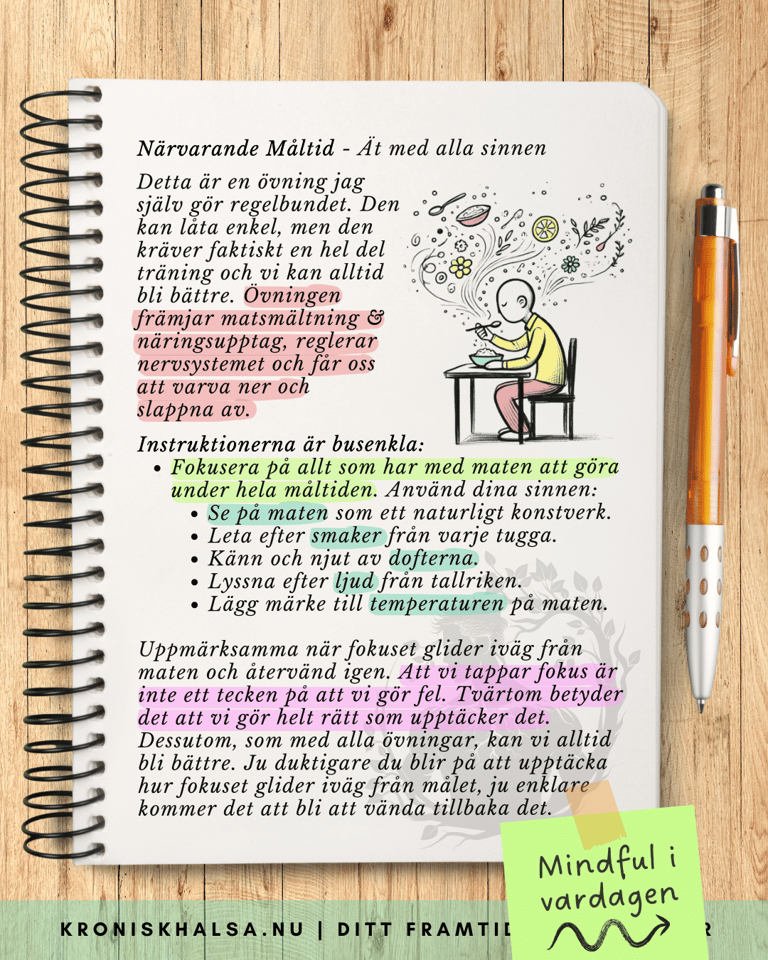 Närvarande Måltid - Ät med alla sinnen
Detta är en övning jag
själv gör regelbundet. Den
kan låta enkel, men den
kräver faktiskt en hel del
träning och vi kan alltid
bli bättre. Övningen
främjar matsmältning &
näringsupptag, reglerar
nervsystemet och får oss
att varva ner och
slappna av.
Instruktionerna är busenkla:
• Fokusera på allt som har med maten att göra
under hela måltiden. Använd dina sinnen:
• Se på maten som ett naturligt konstverk.
• Leta efter smaker från varje tugga.
• Känn och njut av dofterna.
• Lyssna efter ljud från tallriken.
• Lägg märke till temperaturen på maten.
Uppmärksamma när fokuset glider iväg från
maten och återvänd igen. Att vi tappar fokus är
inte ett tecken på att vi gör fel. Tvärtom betyder
det att vi gör helt rätt som upptäcker det.
Dessutom, som med alla övningar, kan vi alltid
bli bättre. Ju duktigare du blir på att upptäcka
hur fokuset glider iväg från målet, ju enklare
kommer det att bli att vända tillbaka det.
Mindful i
vardagen
KRONISKHALSA.NU | DITT